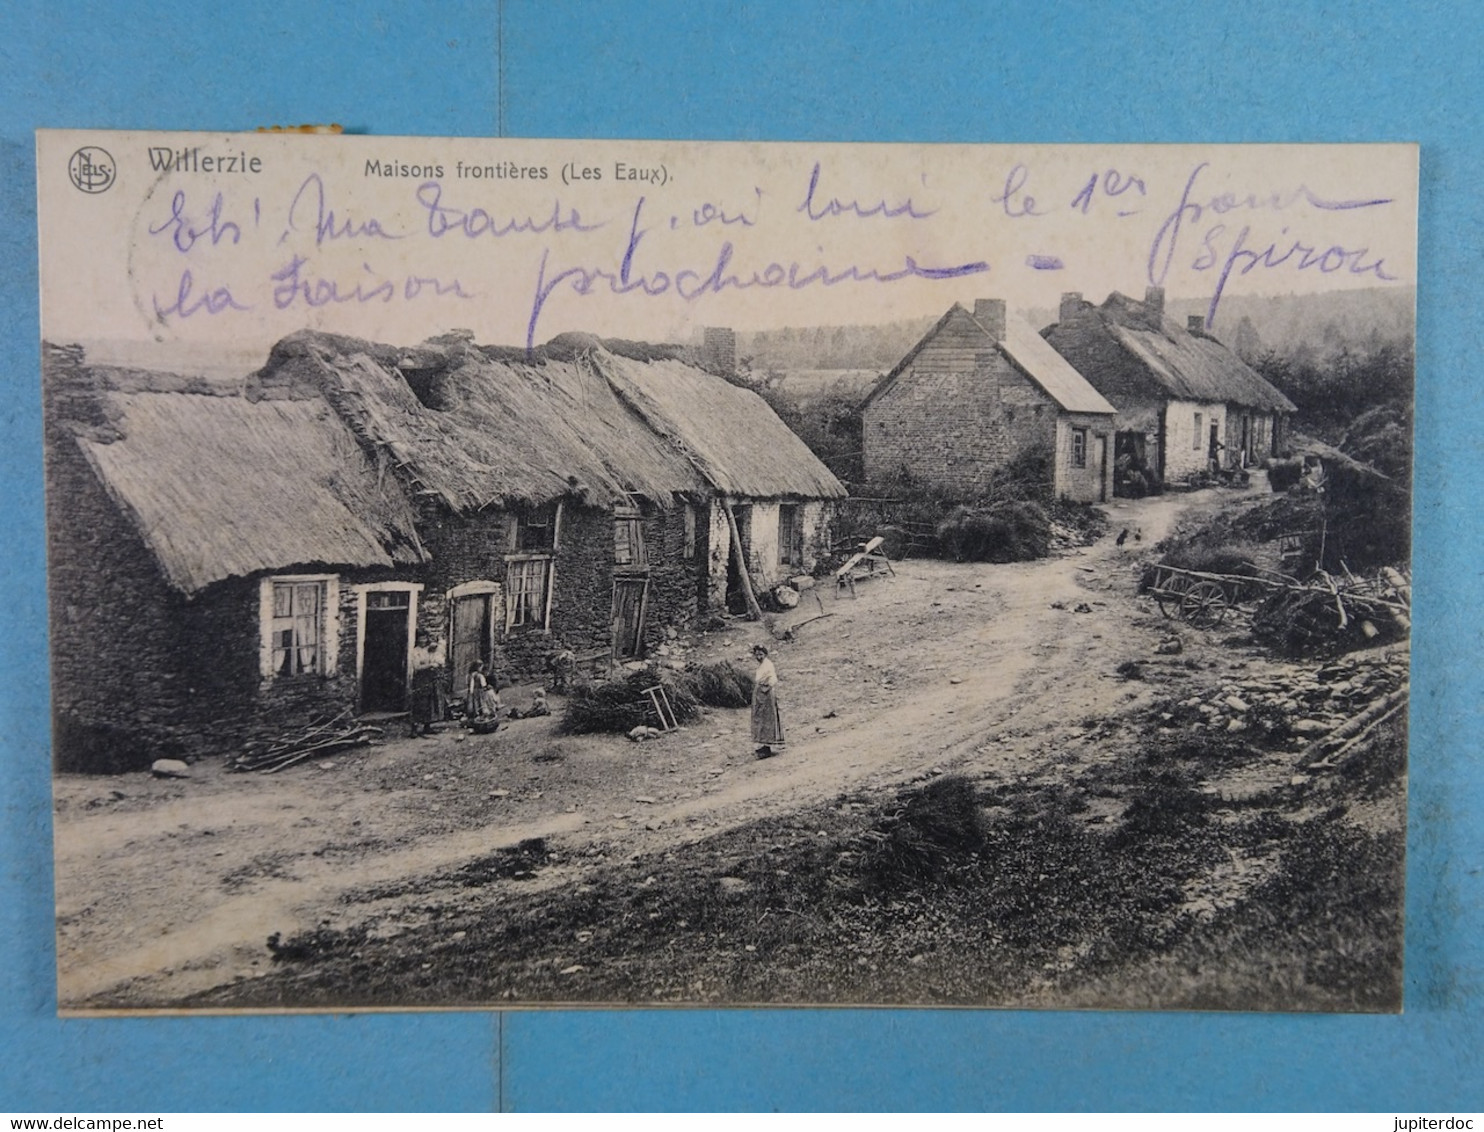 NELS
Willerzie Maisons frontières (Les Eaux).
Eh! Ma Tante j'ai loué le 1er pour
la saison prochaine - Spirou
jupiterdoc